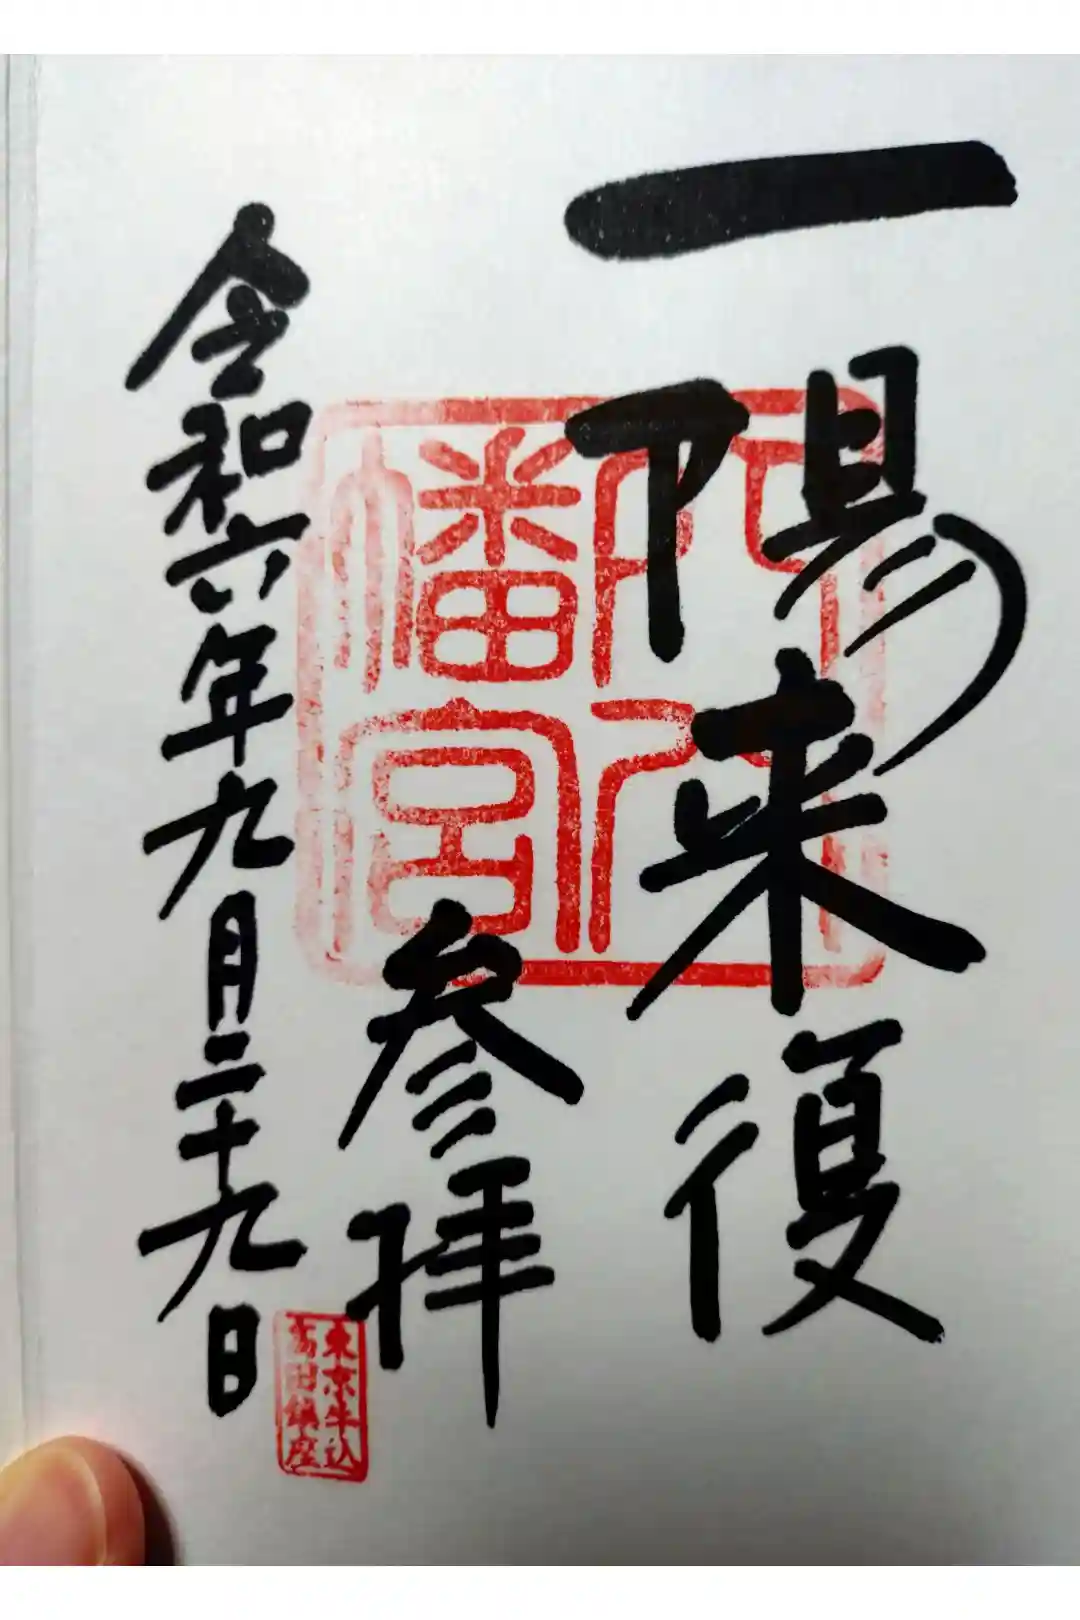 一陽来復
参拝
令和六年九月二十九日
八
幡宮
東京牛込
高田鎮座